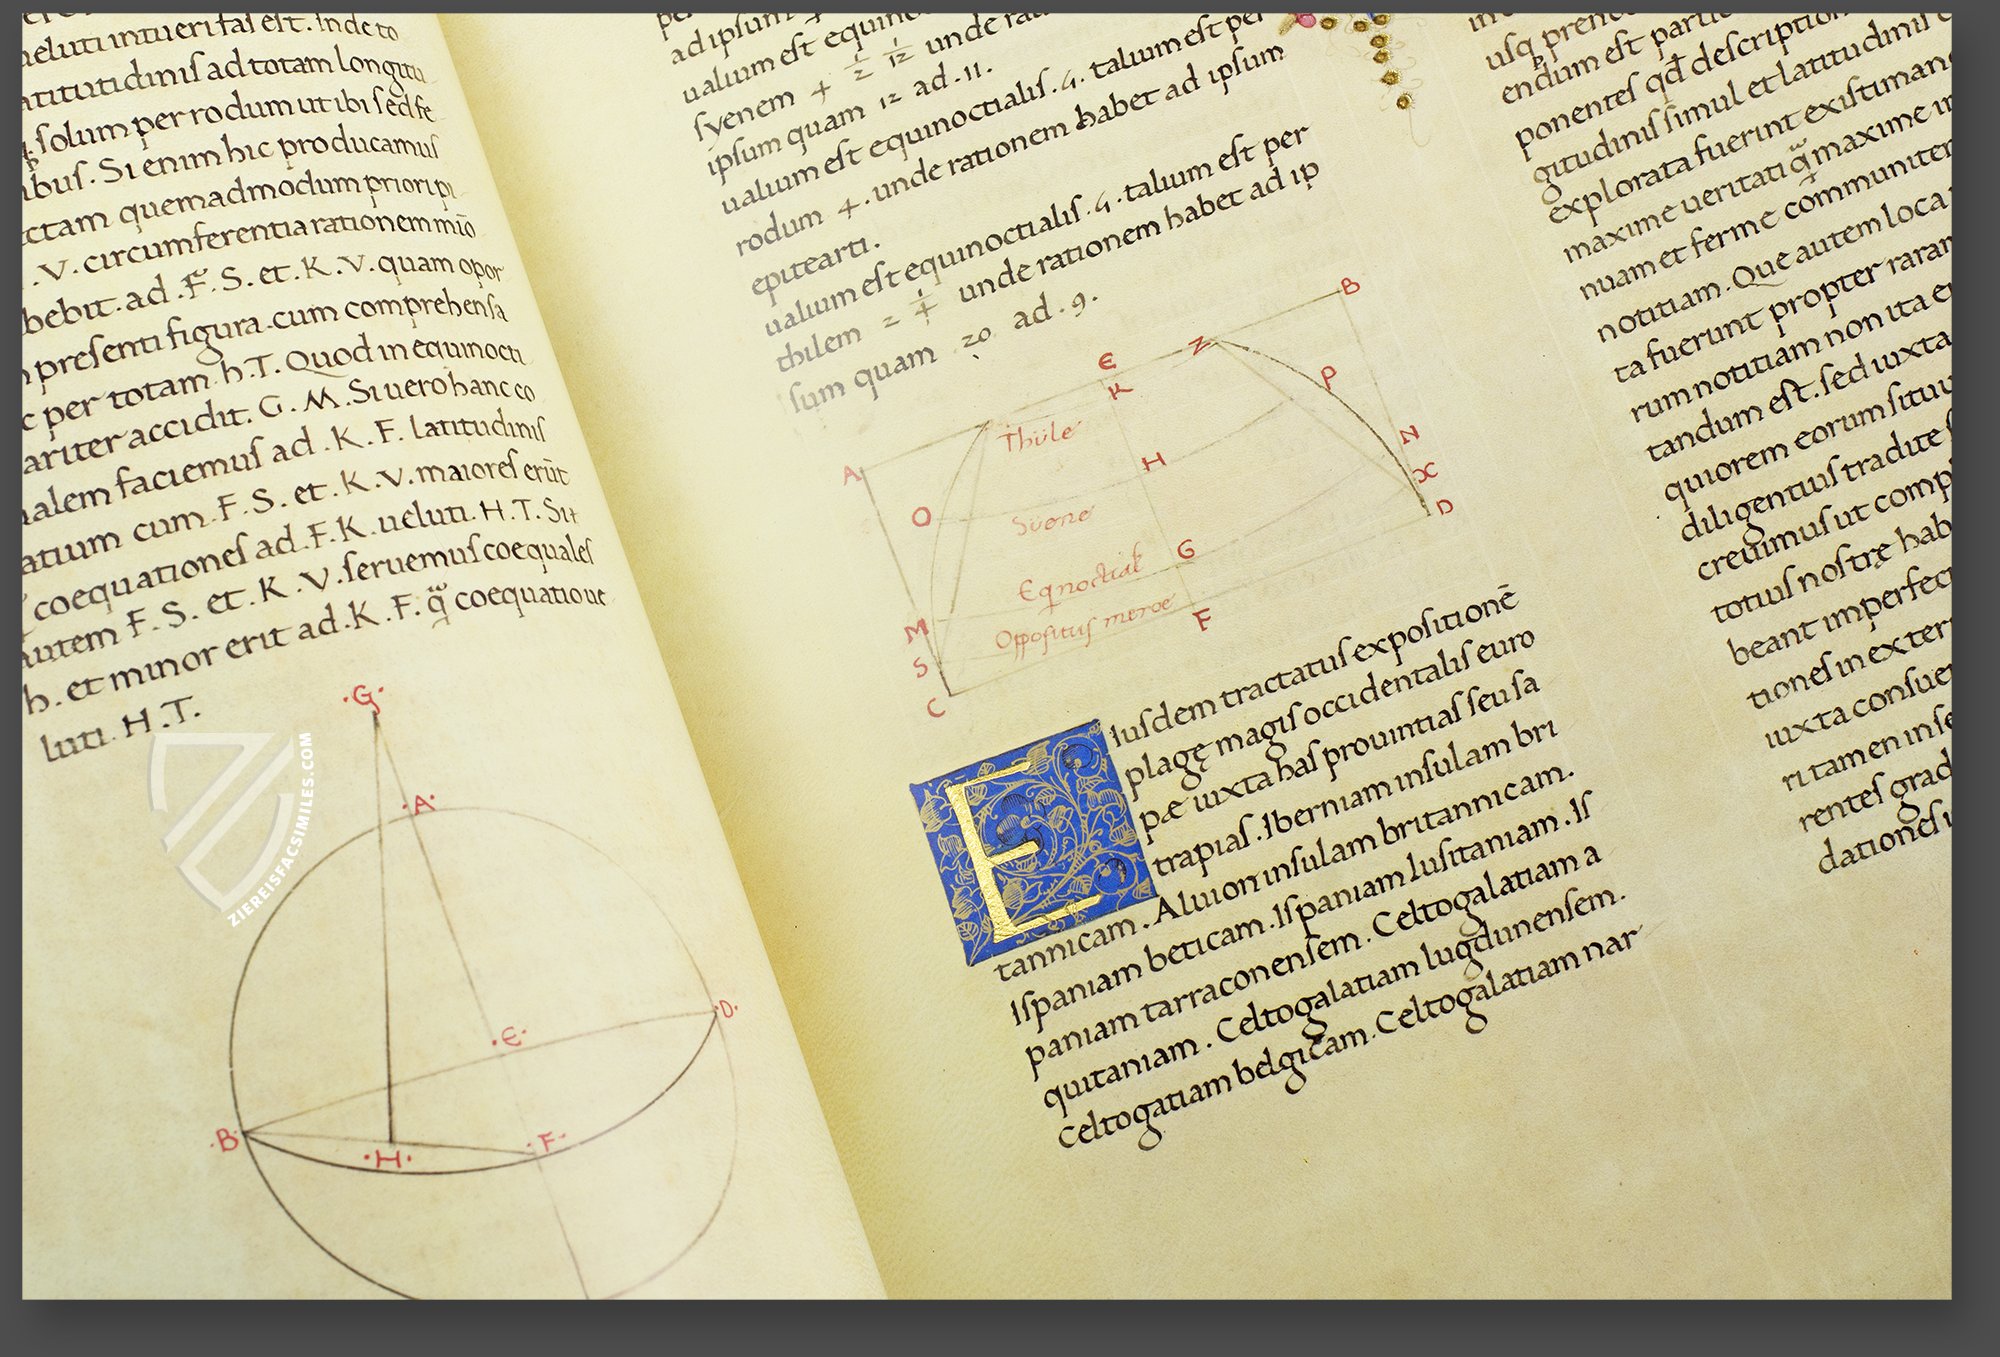 ueluti intueri fas est. Inde to
latitutidinis ad totam longitu
solum per rodum ut ibi sed fe
ibus. Si enim hic producamus
ctam quemadmodum priori pi
.V. circumferentia rationem mīo
bebit. ad .F. S. et. K. V. quam opor
presenti figura. cum comprehensa
c per totam h. T. Quod in equinocti
ariter accidit. G. M. Si uero hanc co
alem faciemus ad .K. F. latitudinis
atium cum. F. S. et. K. V. maiores erūt
coequationes ad .F. K. ueluti. H. T. Si
autem F. S. et. K. V. seruemus coequales
h. et minor erit ad .K. F. coequatione
luti. H. T.
.G.
.A.
.D.
.E.
.B.
.H.
.F.
ZIEREISFACSIMILES.COM
ad ipsum
ualium est equino
syenem 4 1/2 1/12 unde ra
ipsum quam 12 ad .11.
ualium est equinoctialis .4. talium est per
rodum 4. unde rationem habet ad ipsum
epitearti.
ualium est equinoctialis .4. talium est per
thilem 2 1/4 unde rationem habet ad ip
sum quam 20 ad .9.
B
E
Z
K
P
Thüle
A
N
H
X
O
Süene
D
G
Eqnoctial
M
Oppositus meroe
F
S
C
Eiusdem tractatus expositionē
plagę magis occidentalis euro
pæ iuxta has prouintias seu sa
trapias. Iberniam insulam bri
tannicam. Aluion insulam britannicam.
Ispaniam beticam. Ispaniam lusitaniam. Is
paniam tarraconensem. Celtogalatiam a
quitaniam. Celtogalatiam lugdunensem.
Celtogatiam belgicam. Celtogalatiam nar
usq prend
endum est partic
ponentes qd descriptio
gitudinis simul et latitudinis
explorata fuerint existiman
maxime ueritati maxime
nuam et ferme communiter
notitiam. Que autem loca
ta fuerunt propter raram
rum notitiam non ita e
tandum est. sed iuxta
quiorem eorum situ
diligentius tradite
creuimus ut comp
totius nostrę hab
beant imperfec
tiones in exter
iuxta consue
ri tamen in
rentes grad
dationes